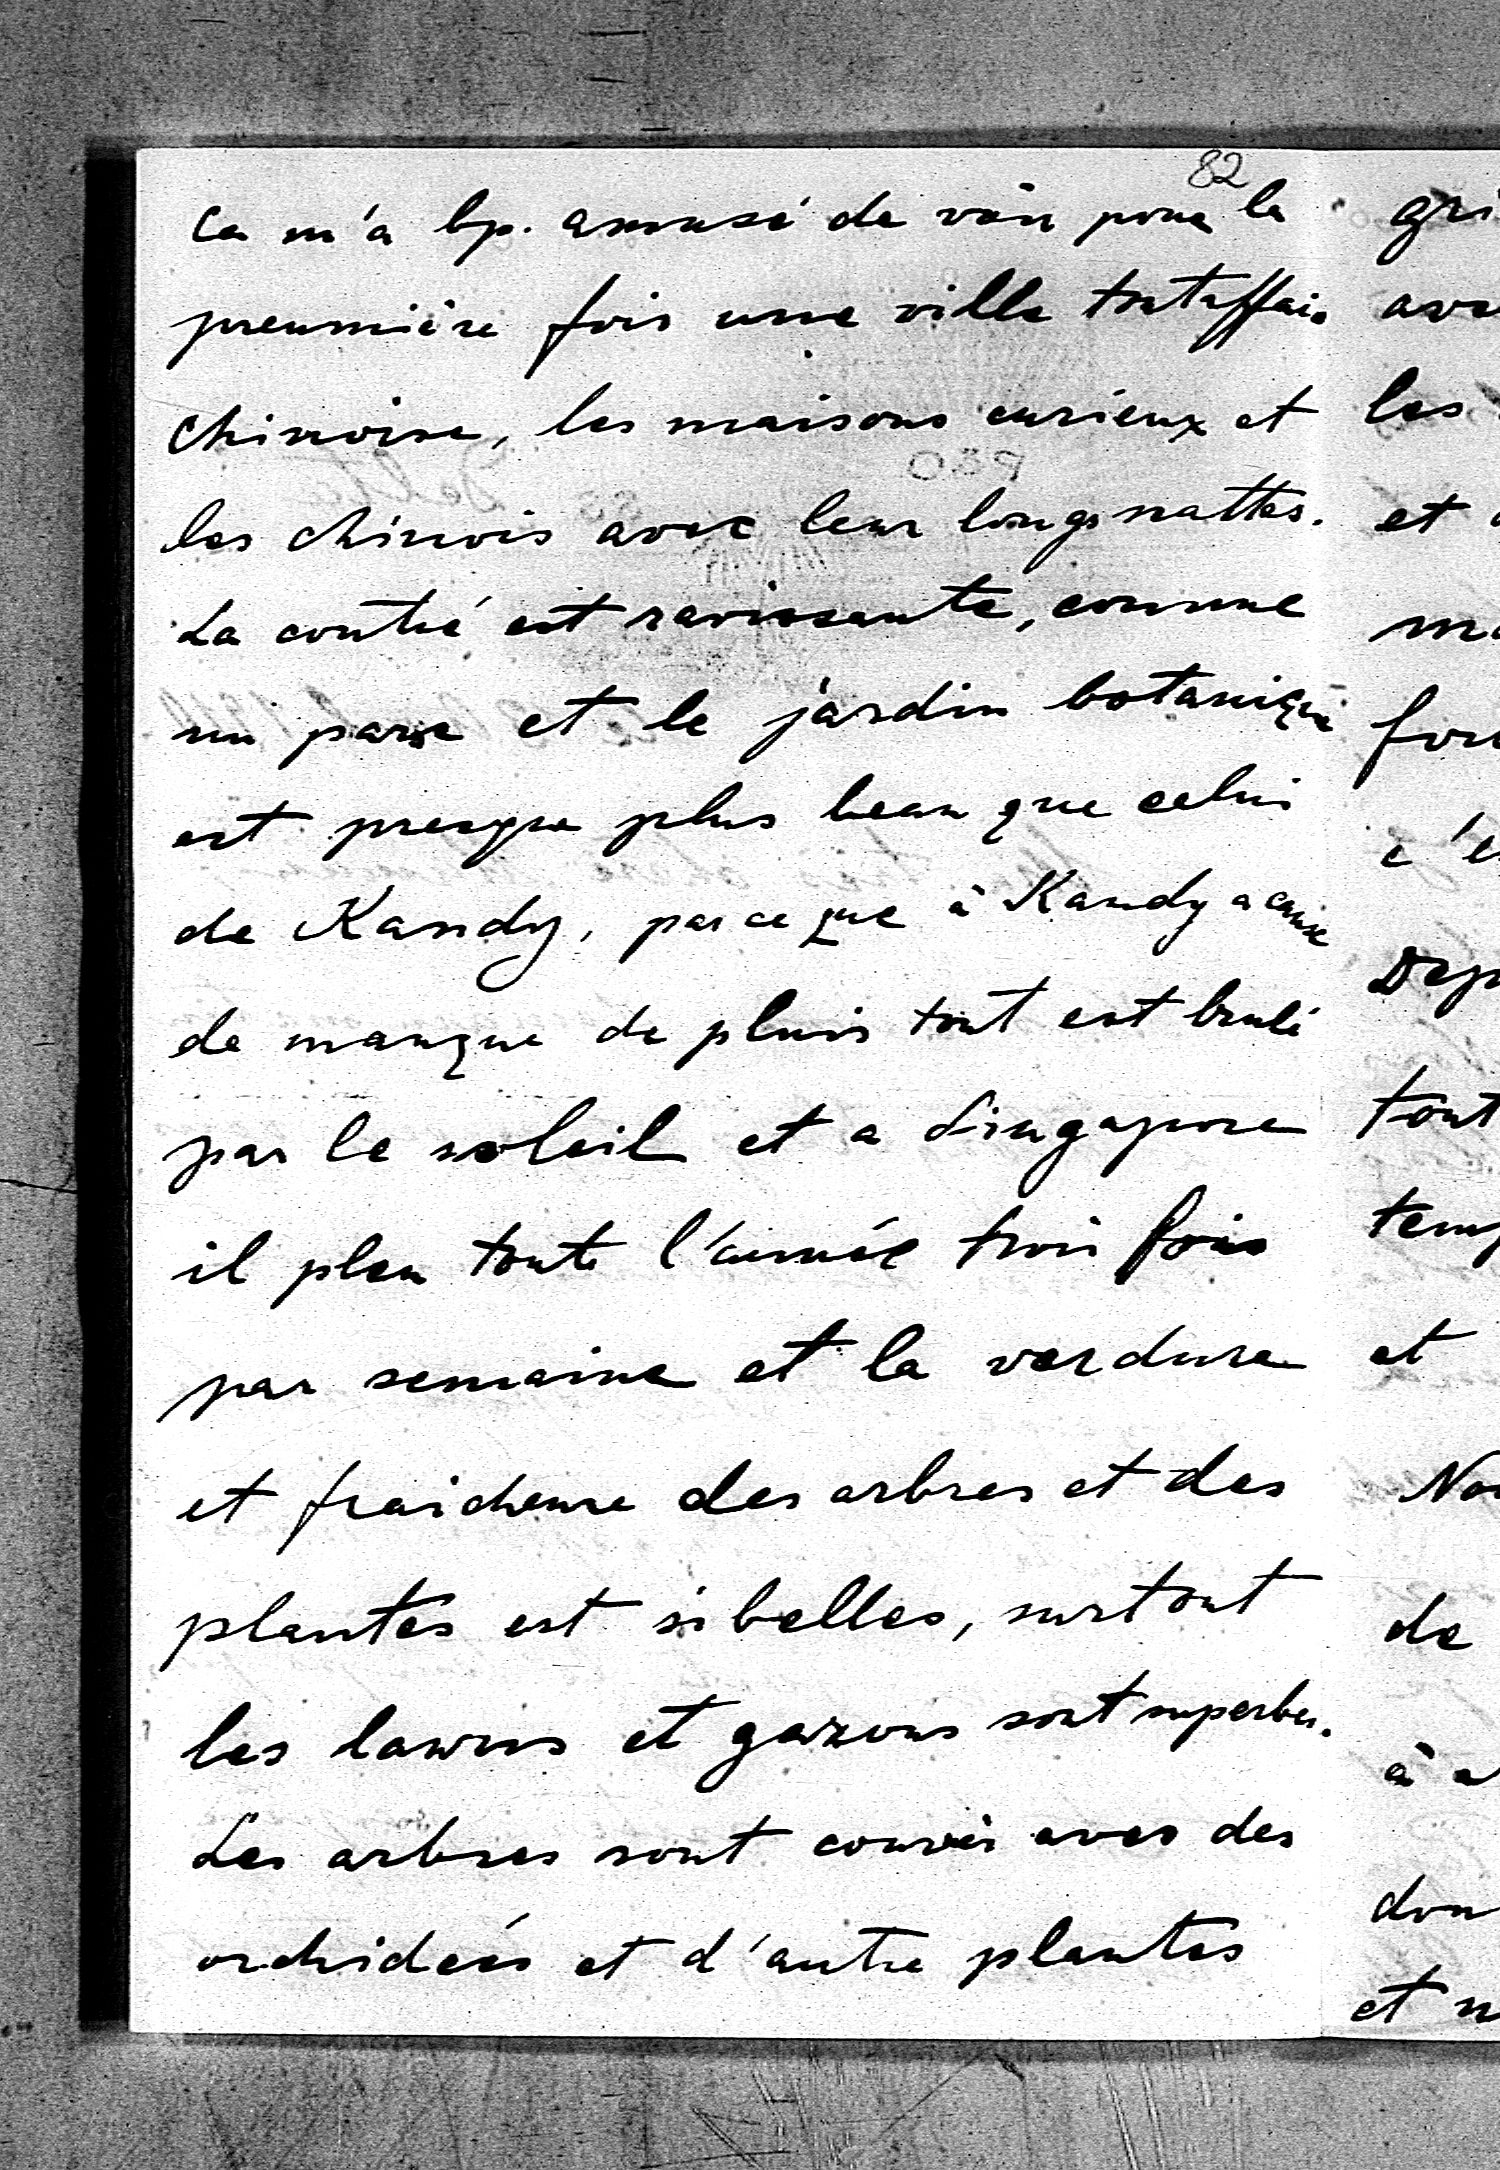 82
Ca m'a bp. amusé de voir pour la
preumière fois une ville toutaffais
chinoise, les maisons curieux et
les chinois avec leur longs nattes.
La contré est ravissante, comme
un parc et le jardin botanique
est presque plus beau que celui
de Kandy, parceque à Kandy a cause
de manque de pluis tout est brulé
par le soleil et a Singapore
il pleu toute l'année trois fois
par semaine et la verdure
et fraicheure des arbres et des
plantes est si belles, surtout
les lawns et gazons sont superbes.
Les arbres sont couvèr aves des
orchideés et d'autre plantes
les
et
tout
et
de
à
et